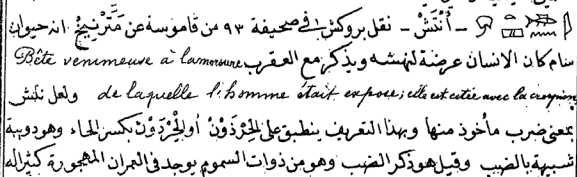 — أَنْتَشْ — نقل بروكش في صحيفة ٩٣ من قاموسه عن مَتَّرْنِيخْ انه حيوان
سام كان الانسان عرضة لنهشه ويذكر مع العقرب Bête venimeuse à la morsure
de laquelle l'homme était exposé; elle est citée avec le scorpion ولعل نتش
بمعنى ضرب مأخوذ منها وبهذا التعريف ينطبق على الحِرْذَوْنْ أو الحِرْدَوْنْ بكسر الحاء وهو دويبة
شبيهة بالضب وقيل هو ذكر الضب وهو من ذوات السموم يوجد فى العمران المهجورة كثيرا له